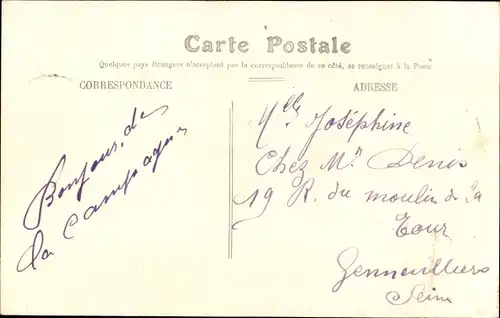 Carte Postale
Quelques pays étrangers n'acceptant pas la correspondance de ce côté, se renseigner à la Poste
CORRESPONDANCE
ADRESSE
Bonjour, de
la Campagne
Mlle Joséphine
Chez Mr Denis
19 R. du moulin de la
Tour
Gennevilliers
Seine